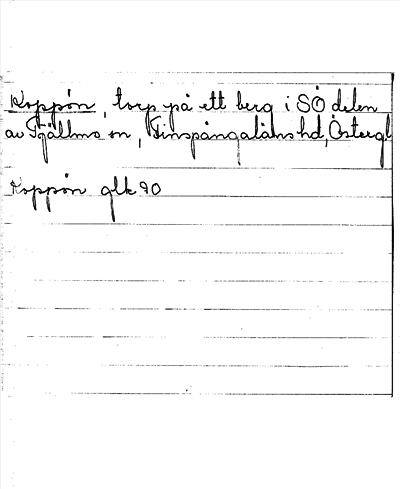 Koppön, torp på ett berg i SÖ delen
av Tjällmo sn, Finspångaläns hd, Östergl
Koppön glk 90